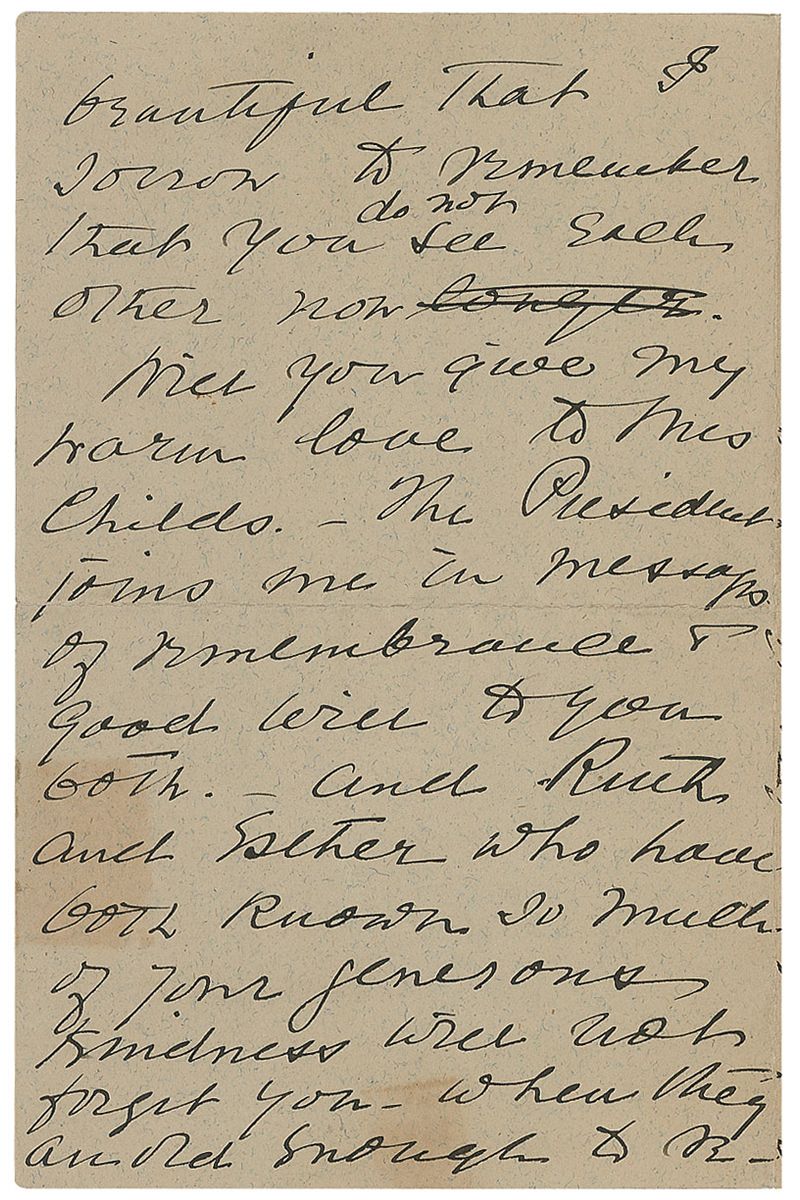 beautiful that I
sorrow to remember
that you do not see each
other now longer.
Will you give my
warm love to Mrs
Childs. – The President
joins me in messages
of remembrance &
good will to you
both. – and Ruth
and Esther who have
both known so much
of your generous
kindness will not
forget you – when they
are old enough to re–